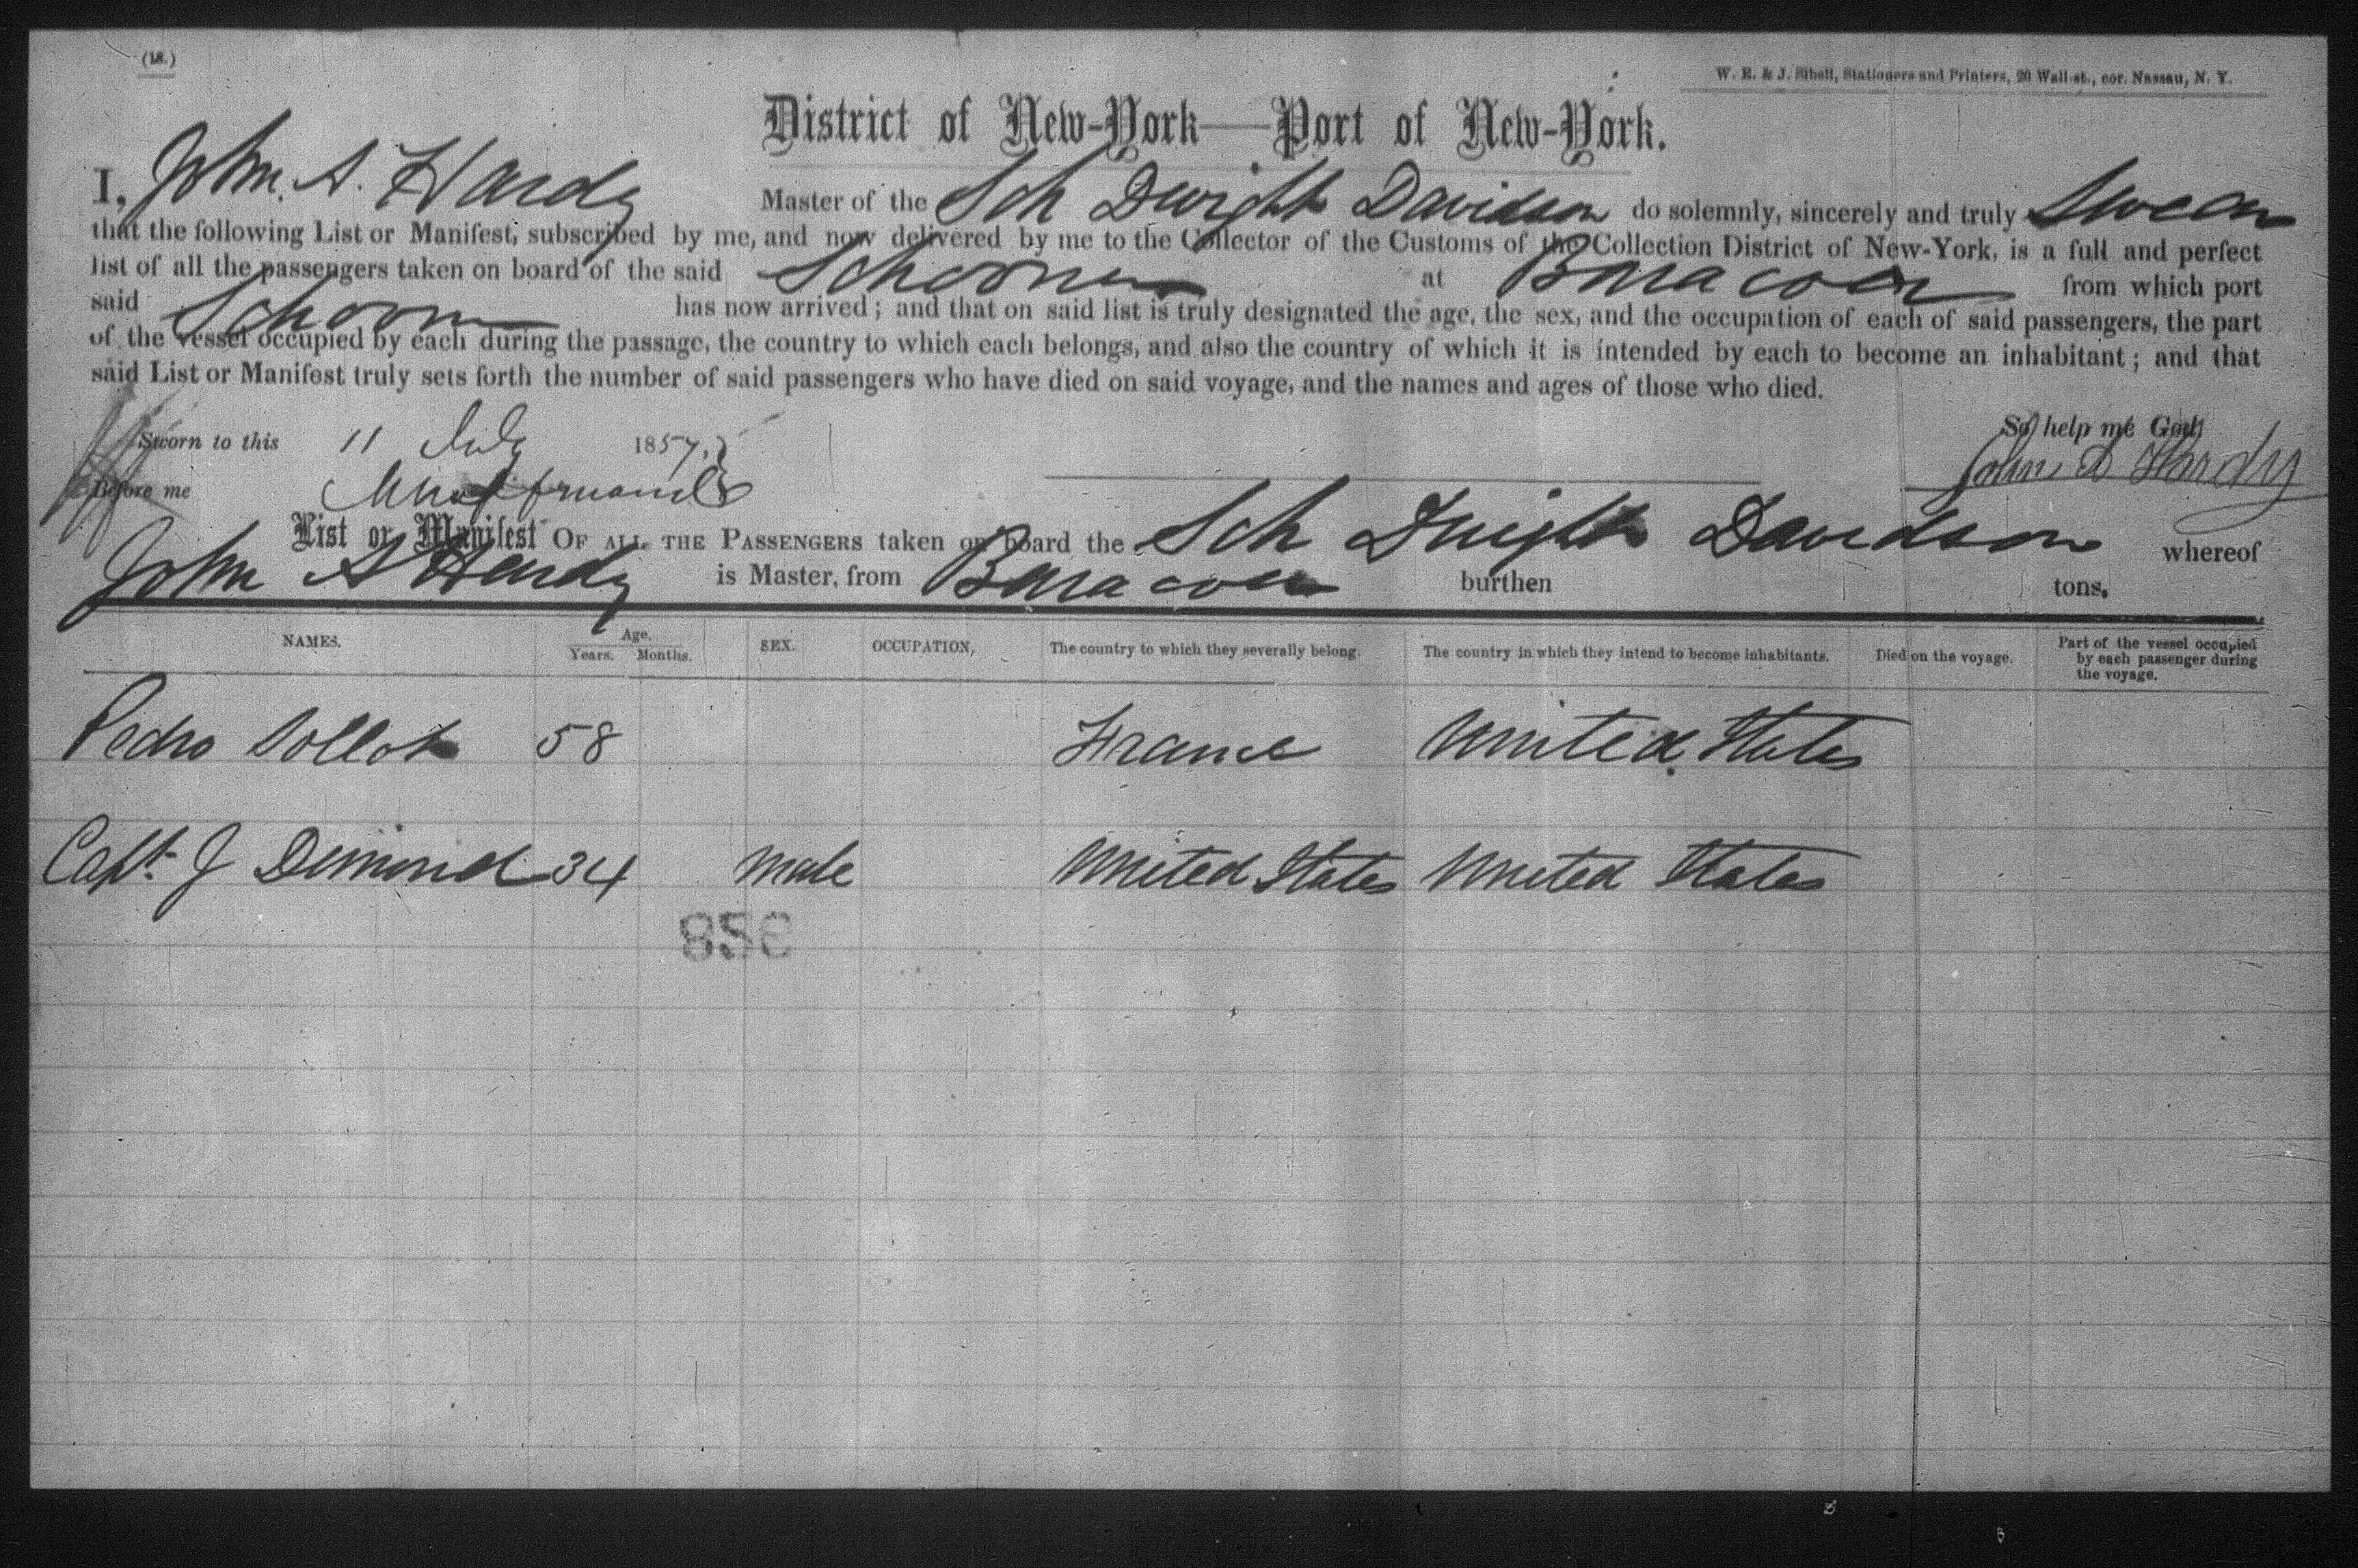 (18.)
W. E. & J. Sibell, Stationers and Printers, 20 Wall-st., cor. Nassau, N. Y.
District of New-York—Port of New-York.
I, John. A. Hardy Master of the Sch Dwight Davidson do solemnly, sincerely and truly Swear
that the following List or Manifest, subscribed by me, and now delivered by me to the Collector of the Customs of the Collection District of New-York, is a full and perfect
list of all the passengers taken on board of the said Schooner at Baracoa from which port
said Schooner has now arrived; and that on said list is truly designated the age, the sex, and the occupation of each of said passengers, the part
of the vessel occupied by each during the passage, the country to which each belongs, and also the country of which it is intended by each to become an inhabitant; and that
said List or Manifest truly sets forth the number of said passengers who have died on said voyage, and the names and ages of those who died.
So help me God.
Sworn to this 11 July 1857.
John A Hardy
Before me
List or Manifest OF ALL THE PASSENGERS taken on board the Sch Dwight Davidson whereof
John A Hardy is Master, from Baracoa burthen tons.
NAMES. Age. Years. Months. SEX. OCCUPATION, The country to which they severally belong. The country in which they intend to become inhabitants. Died on the voyage. Part of the vessel occupied by each passenger during the voyage.
Pedro Sollot 58 France United States
Capt. J Dimond 34 Male United States United States
856